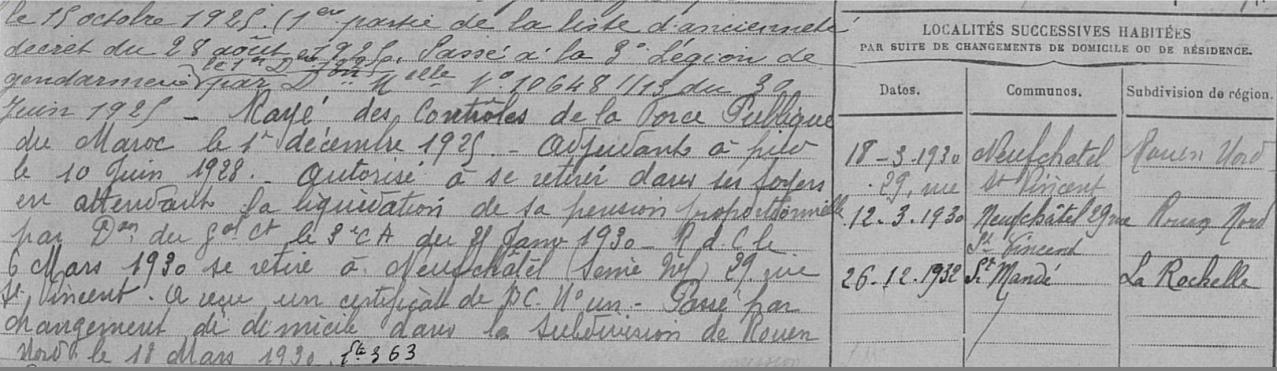 le 15 octobre 1925. (1ère partie de la liste d'ancienneté
décret du 28 août 1925. Passé à la 3e Légion de
le 1er Dbre 1925
gendarmerie par Don Melle No 10648 1/13 du 30
Juin 1925 - Rayé des Contrôles de la Force Publique
du Maroc le 1er décembre 1925. - Adjudant à pied
le 10 Juin 1928. - Autorisé à se retirer dans ses foyers
en attendant la liquidation de sa pension proportionnelle
par Don du Gal Ct le 3e CA du 21 Janv 1930 - R d C le
6 Mars 1930 se retire à Neufchâtel (Seine Inf) 29 rue
St Vincent. A reçu un certificat de B.C. No un. - Passé par
changement de domicile dans la subdivision de Rouen
Nord le 18 Mars 1930. 363
LOCALITÉS SUCCESSIVES HABITÉES
PAR SUITE DE CHANGEMENTS DE DOMICILE OU DE RÉSIDENCE.
Dates. Communes. Subdivision de région.
18-3.1930 Neufchatel Rouen Nord
29, rue St Vincent
12-3.1930 Neufchâtel 29 rue Rouen Nord
St Vincent
26.12.1932 St Mandé La Rochelle